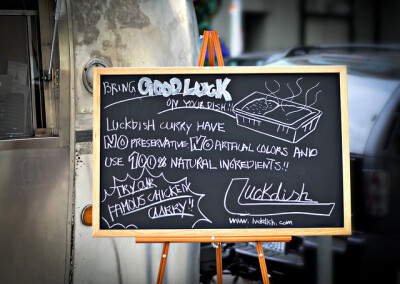 BRING GOOD LUCK
ON YOUR DISH!!
LUCKDISH CURRY HAVE
NO PRESERVATIVE NO ARTFICAL COLORS AND
USE 100% NATURAL INGREDIENTS!!
TRY OUR
FAMOUS CHICKEN
CURRY!!
Luckdish
www.luckdish.com